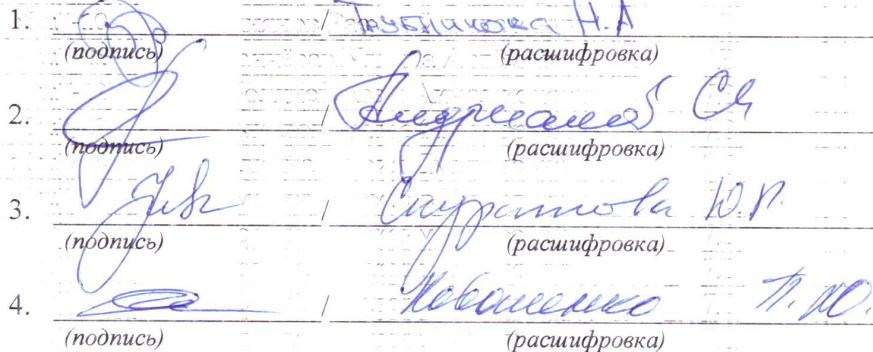 1. / Трубникова Н.А
(подпись) (расшифровка)
2. / Андрианов С
(подпись) (расшифровка)
3. / Скуратова Ю.П.
(подпись) (расшифровка)
4. / П.Ю.
(подпись) (расшифровка)